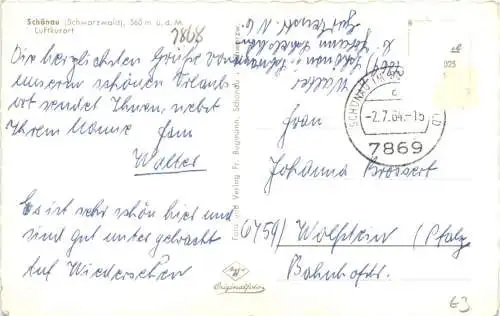 Schönau (Schwarzwald), 560 m ü. d. M.
Luftkurort
7868
Die herzlichsten Grüße von
unserem schönen Urlaubs
ort sendet Ihnen, nebst
Ihrem Manne Fam
Walter
Es ist sehr schön hier und
sind gut untergebracht
Auf Wiedersehen
Foto und Verlag Fr. Bugmann, Schönau
Walter
7869 Schönau
SCHÖNAU
c
-2.7.64.-15
7869
025
Frau
Johanna Brossert
6759/ Wolfstein/Pfalz
Bahnhofstr.
Originalfoto
63